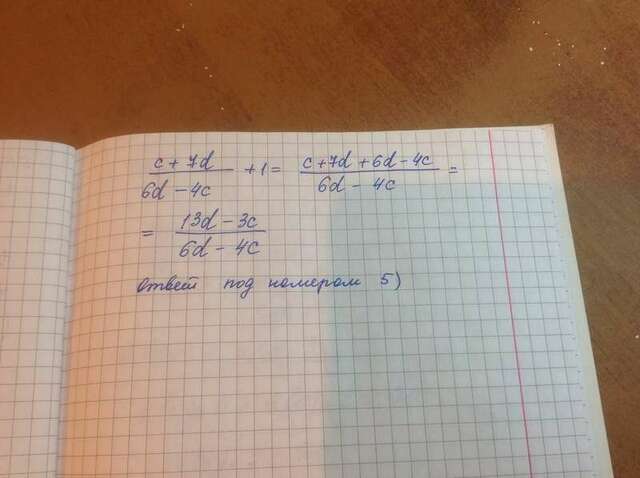 (c + 7d)/(6d - 4c) + 1 = (c + 7d + 6d - 4c)/(6d - 4c) =
= (13d - 3c)/(6d - 4c)
ответ под номером 5)